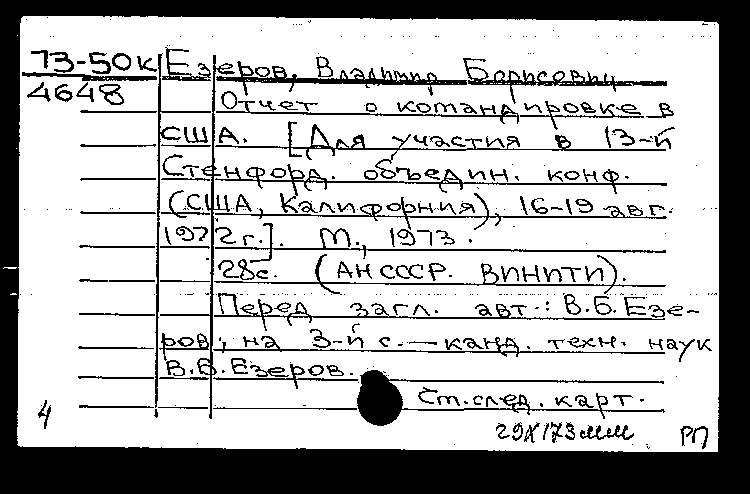 73-50к Езеров, Владимир Борисович
4648 Отчет о командировке в
США. [Для участия в 13-й
Стенфорд. объедин. конф.
(США, Калифорния), 16-19 авг.
1972 г.]. М., 1973.
28с. (АН СССР. ВИНИТИ).
Перед загл. авт.: В.Б.Езе-
ров; на 3-й с. — канд. техн. наук
В.Б.Езеров.
4 См.след. карт.
29X173мми РП